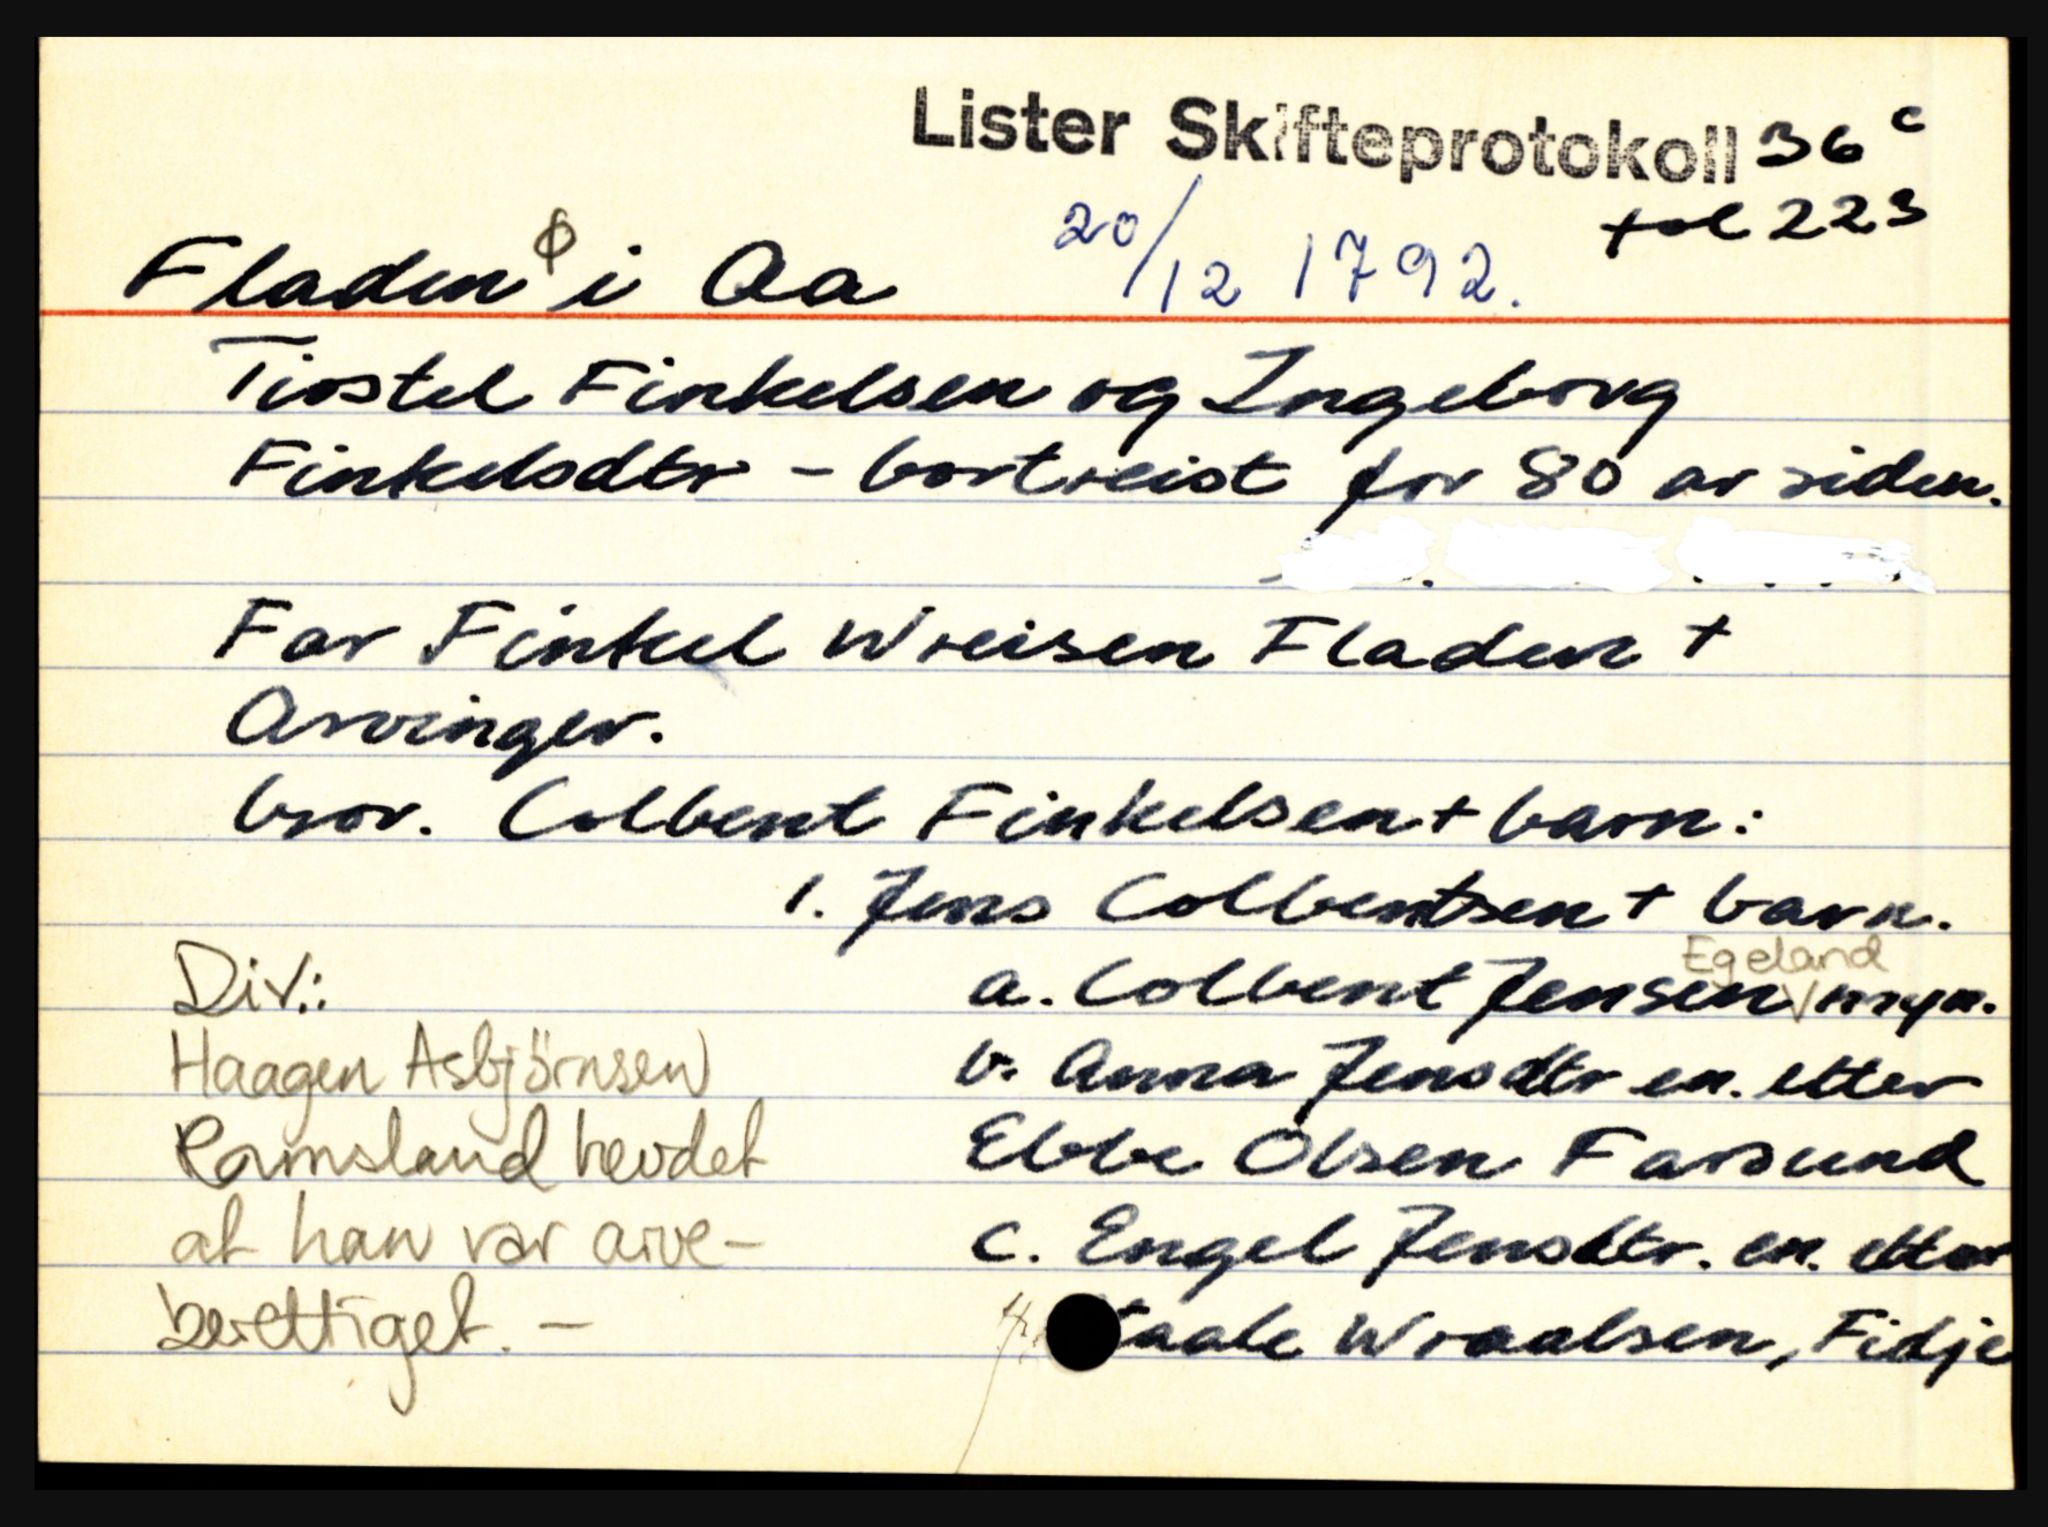 Lister Skifteprotokoll 36 c
fol 223
Fladen φ i Aa 20/12 1792.
Tiostel Finkelsen og Ingeborg
Finkelsdtr - bortreist for 80 ar siden.
Far Finkel Wreisen Fladen +
Arvinger.
bror. Colbent Finkelsen + barn:
1. Jens Colbentsen + barn.
Egeland
a. Colbent Jensen √ myn.
b. Anna Jensdtr en. etter
Ebbe Olsen Farsund
c. Engel Jensdtr. en. etter
Staale Wraalsen, Fidje
Div.:
Haagen Asbjörnsen
Ramsland hevdet
at han var arve-
berettiget. -